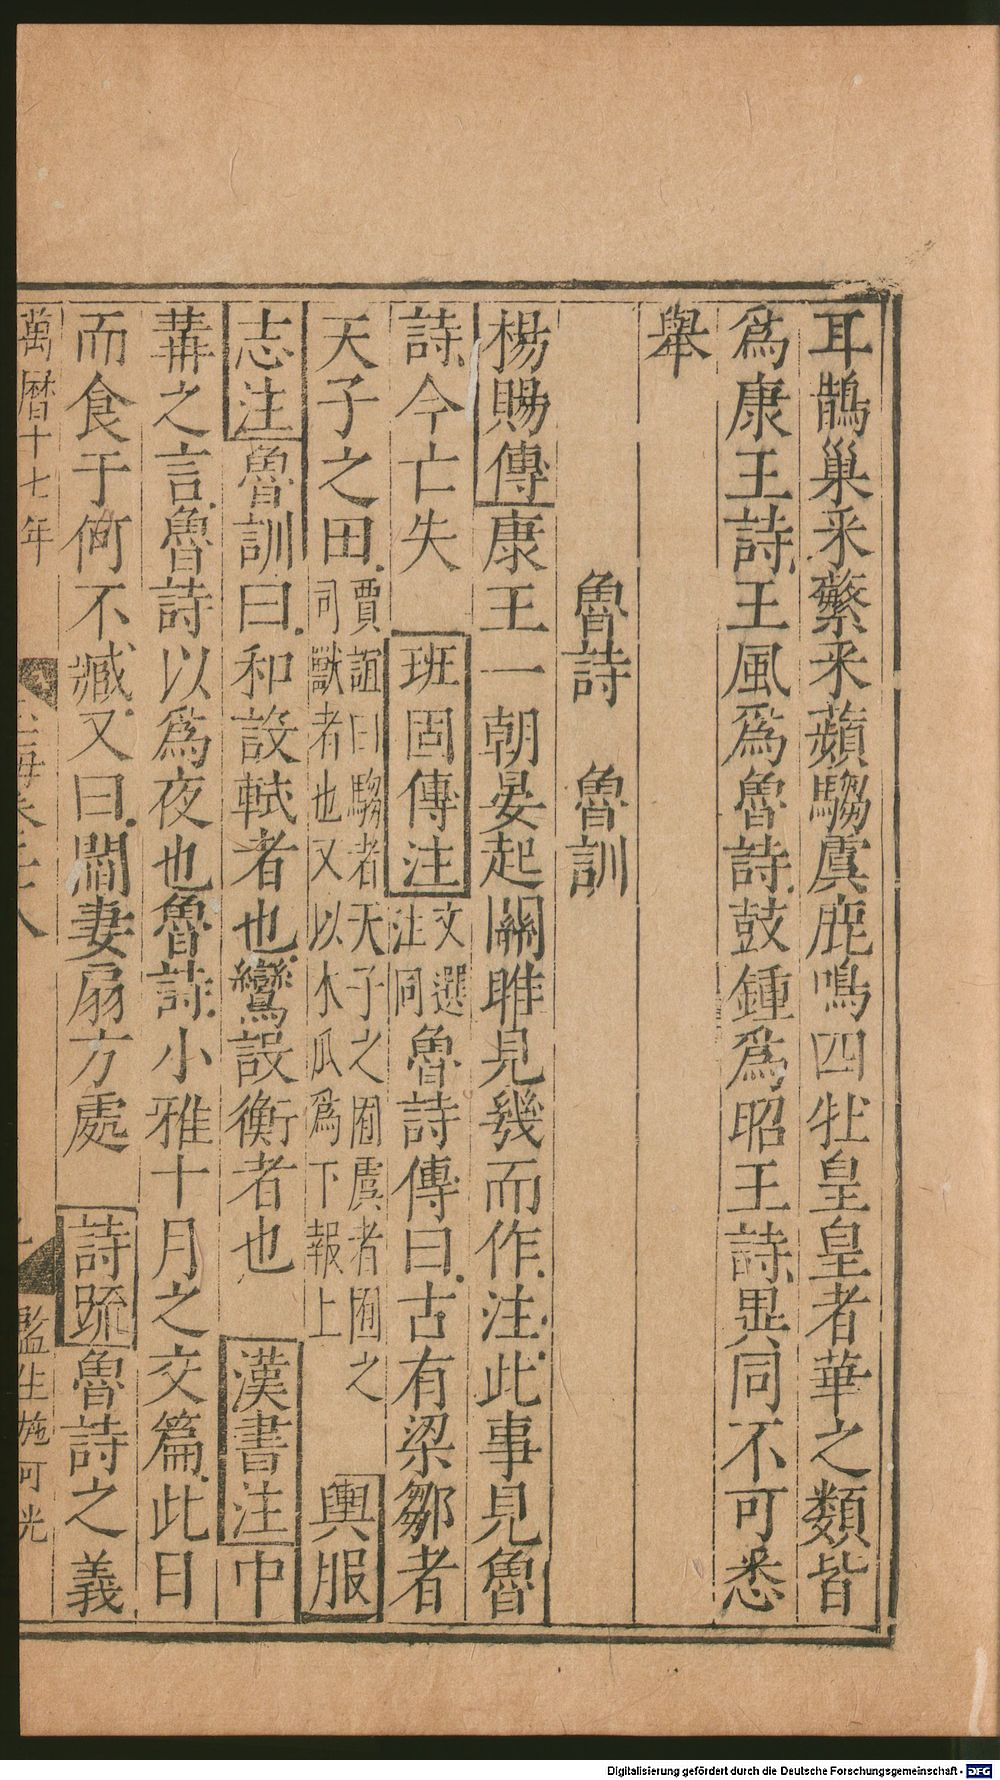 耳鵲巢采蘩采蘋騶虞鹿鳴四牡皇皇者華之類皆
爲康王詩王風爲魯詩鼓鍾爲昭王詩異同不可悉
舉
魯詩 魯訓
楊賜傳康王一朝晏起關雎見幾而作注此事見魯
詩今亡失 班固傳注 文選注同 魯詩傳曰古有梁鄒者
天子之田 賈誼曰騶者天子之囿虞者囿之司獸者也又以木瓜爲下報上 輿服
志注魯訓曰和設軾者也鸞設衡者也 漢書注中
冓之言魯詩以爲夜也魯詩小雅十月之交篇此日
而食于何不臧又曰閻妻扇方處 詩疏魯詩之義
萬曆十七年
監生施可光
Digitalisierung gefördert durch die Deutsche Forschungsgemeinschaft - DFG